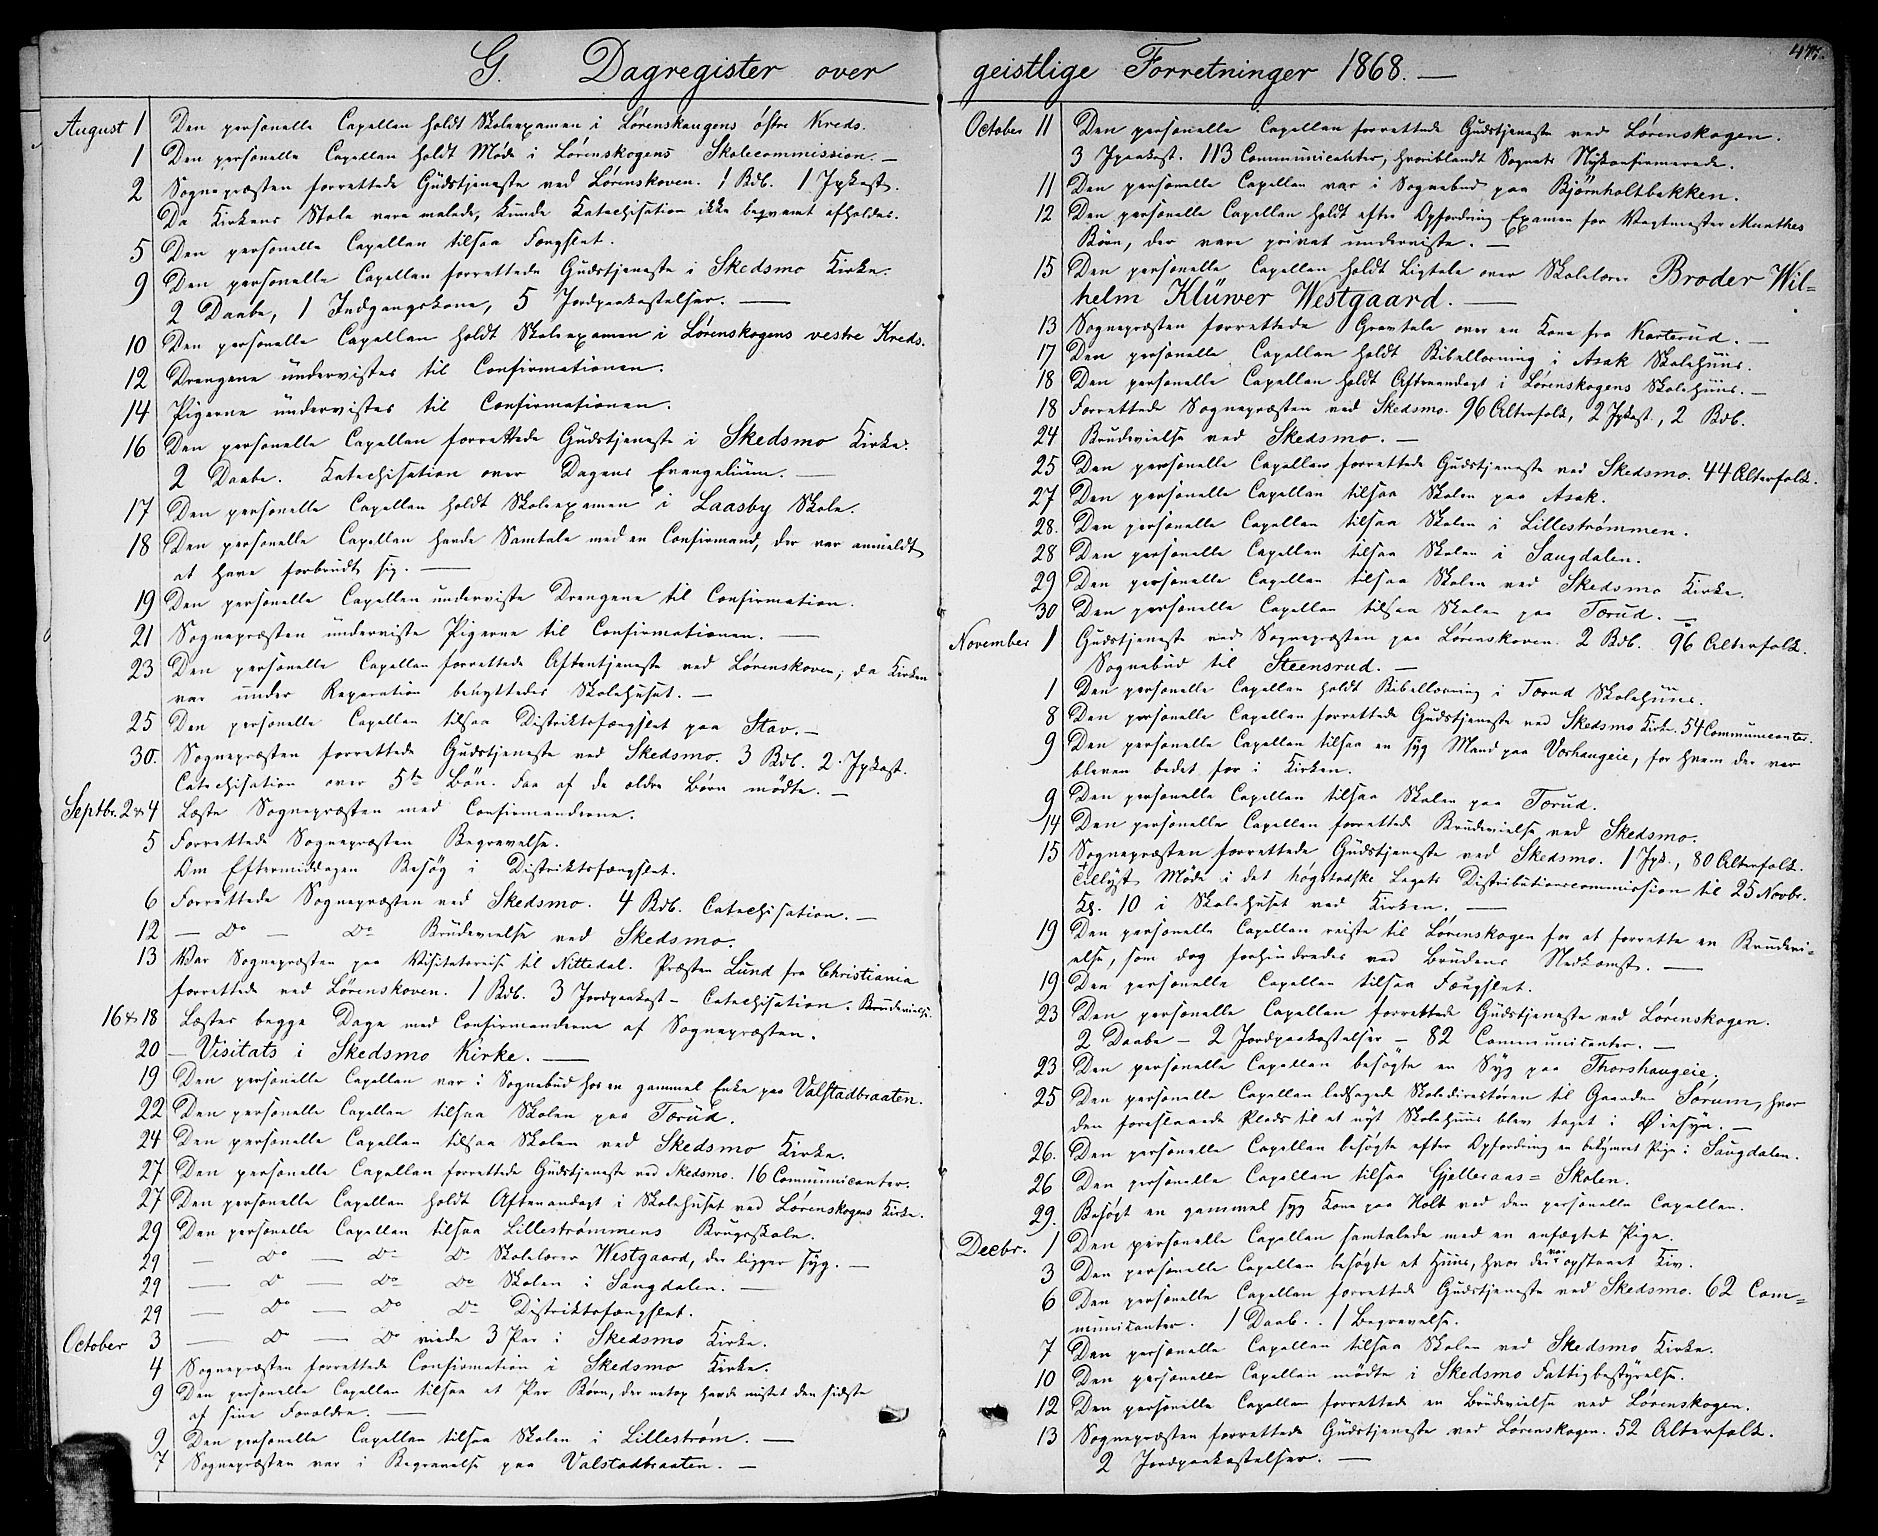 G. Dagregister over
August 1 Den personelle Capellan holdt Skoleexamen i Lørenskaugens østre Kreds.
1 Den personelle Capellan holdt Møde i Lørenskogens Skolecommission. —
2 Sognepræsten forrettede Gudstjeneste ved Lørenskoven. 1 Bdb. 1 Jpkast.
Da Kirkens Stole vare malede, kunde Katechisation ikke beqvemt afholdes.
5 Den personelle Capellan tilsaa Fængslet.
9 Den personelle Capellan forrettede Gudstjeneste i Skedsmo Kirke.
2 Daabe, 1 Indgangskone, 5 Jordpaakastelser. —
10 Den personelle Capellan holdt Skoleexamen i Lørenskogens vestre Kreds.
12 Drengene undervistes til Confirmationen.
14 Pigerne undervistes til Confirmationen.
16 Den personelle Capellan forrettede Gudstjeneste i Skedsmo Kirke.
2 Daabe. Katechisation over Dagens Evangelium. —
17 Den personelle Capellan holdt Skoleexamen i Laasby Skole.
18 Den personelle Capellan havde Samtale med en Confirmand, der var anmeldt
at have forbrudt sig. —
19 Den personelle Capellan underviste Drengene til Confirmation.
21 Sognepræsten underviste Pigerne til Confirmationen. —
23 Den personelle Capellan forrettede Aftentjeneste ved Lørenskoven; da Kirken
var under Reparation benyttedes Skolehuset. —
25 Den personelle Capellan tilsaa Distriktsfængslet paa Stav. —
30. Sognepræsten forrettede Gudstjeneste ved Skedsmo. 3 Bdb. 2 Jpkast.
Catechisation over 5te Bøn. Faa af de ældre Børn mødte. —
Septbr. 2 & 4 Læste Sognepræsten med Confirmanderne.
5 Forrettede Sognepræsten Begravelse.
Om Eftermiddagen Besøg i Distriktsfængslet.
6 Forrettede Sognepræsten ved Skedsmo. 4 Bdb. Catechisation. —
12 — Do — Do Brudevielse ved Skedsmo.
13 Var Sognepræsten paa Visitatsreise til Nittedal. Præsten Lund fra Christiania
forrettede ved Lørenskoven. 1 Bdb. 3 Jordpaakast — Catechisation. Brudevielse.
16 & 18 Læstes begge Dage med Confirmanderne af Sognepræsten.
20 — Visitats i Skedsmo Kirke. —
19 Den personelle Capellan var i Sognebud hos en gammel Enke paa Valstadbraaten.
22 Den personelle Capellan tilsaa Skolen paa Tærud.
24 Den personelle Capellan tilsaa Skolen ved Skedsmo Kirke.
27 Den personelle Capellan forrettede Gudstjeneste ved Skedsmo. 16 Communicanter.
27 Den personelle Capellan holdt Aftenandagt i Skolehuset ved Lørenskogens Kirke.
29 Den personelle Capellan tilsaa Lillestrømmens Brugsskole.
29 — Do — Do Do Skolelærer Westgaard, der ligger syg. —
29 — Do — Do Do Skolen i Sangdalen. —
29 — Do — Do Do Distriktsfængslet.
October 3 — Do — Do viede 3 Par i Skedsmo Kirke.
4 Sognepræsten forrettede Confirmation i Skedsmo Kirke.
9 Den personelle Capellan tilsaa et Par Børn, der netop havde mistet den sidste
af sine Forældre. —
9 Den personelle Capellan tilsaa Skolen i Lillestrøm. —
7 Sognepræsten var i Begravelse paa Valstadbraaten. —
geistlige Forretninger 1868. —
477.
October 11 Den personelle Capellan forrettede Gudstjeneste ved Lørenskogen.
3 Jpaakast. 113 Communicanter, hvoriblandt Sognets Nykonfirmerede.
11 Den personelle Capellan var i Sognebud paa Bjørnholtbakken.
12 Den personelle Capellan holdt efter Opfordring Examen for Vagtmester Munthes
Børn, der vare privat underviste. —
15 Den personelle Capellan holdt Ligtale over Skolelærer Broder Wil=
helm Klüwer Westgaard. —
13 Sognepræsten forrettede Gravtale over en Kone fra Karterud. —
17 Den personelle Capellan holdt Bibellæsning i Asak Skolehuus.
18 Den personelle Capellan holdt Aftenandagt i Lørenskogens Skolehuus. —
18 Forrettede Sognepræsten ved Skedsmo. 96 Alterfolk, 2 Jpkast., 2 Bdb.
24 Brudevielse ved Skedsmo. —
25 Den personelle Capellan forrettede Gudstjeneste ved Skedsmo. 44 Alterfolk.
27 Den personelle Capellan tilsaa Skolen paa Asak.
28. Den personelle Capellan tilsaa Skolen i Lillestrømmen.
28 Den personelle Capellan tilsaa Skolen i Sangdalen.
29 Den personelle Capellan tilsaa Skolen ved Skedsmo Kirke.
30 Den personelle Capellan tilsaa Skolen paa Tærud. —
November 1 Gudstjeneste ved Sognepræsten paa Lørenskoven. 2 Bdb. 96 Alterfolk.
Sognebud til Steensrud. —
1 Den personelle Capellan holdt Bibellæsning i Tærud Skolehuus.
8 Den personelle Capellan forrettede Gudstjeneste ved Skedsmo Kirke. 54 Communicanter.
9 Den personelle Capellan tilsaa en syg Mand paa Vorhaugeie, for hvem der var
bleven bedet for i Kirken.
9 Den personelle Capellan tilsaa Skolen paa Tærud.
14 Den personelle Capellan forrettede Brudevielse ved Skedsmo.
15 Sognepræsten forrettede Gudstjeneste ved Skedsmo. 1 Jpk., 80 Alterfolk.
Tillyst Møde i det høgstadske Legats Distributionscommission til 25 Novbr.
Kl. 10 i Skolehuset ved Kirken. —
19 Den personelle Capellan reiste til Lørenskogen for at forrette en Brudevi=
else, som dog forhindredes ved Brudens Nedkomst. —
19 Den personelle Capellan tilsaa Fængslet.
23 Den personelle Capellan forrettede Gudstjeneste ved Lørenskogen.
2 Daabe — 2 Jordpaakastelser — 82 Communicanter. —
23 Den personelle Capellan besøgte en Syg paa Thorshaugeie.
25 Den personelle Capellan ledsagede Skoledirektøren til Gaarden Sørum, hvor
den foreslaaede Plads til et nyt Skolehuus blev taget i Øiesyn. —
26. Den personelle Capellan besøgte efter Opfordring en bekymret Pige i Sangdalen.
26 Den personelle Capellan tilsaa Gjelleraas= Skolen.
29. Besøgt en gammel syg Kone paa Holt ved den personelle Capellan.
Decbr. 1 Den personelle Capellan samtalede med en anfægtet Pige.
3 Den personelle Capellan besøgte et Huus, hvor der var opstaaet Kiv.
6 Den personelle Capellan forrettede Gudstjeneste ved Skedsmo. 62 Com=
municanter. 1 Daab.. 1 Begravelse.
7 Den personelle Capellan tilsaa Skolen ved Skedsmo Kirke.
10 Den personelle Capellan mødte i Skedsmo Fattigbestyrelse.
12 Den personelle Capellan forrettede en Brudevielse ved Lørenskogen.
13 Sognepræsten forrettede Gudstjeneste ved Lørenskogen. 52 Alterfolk.
2 Jordpaakastelser. —